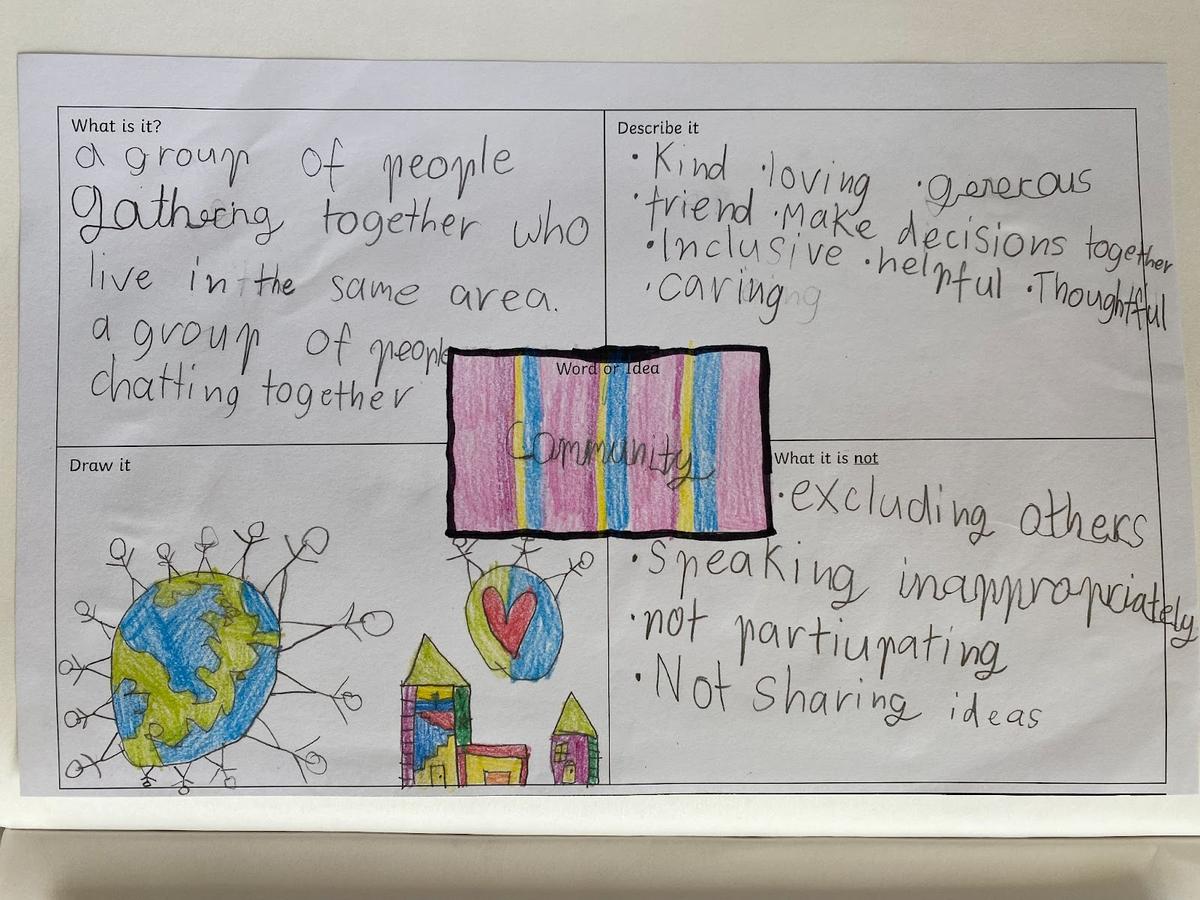 What is it?
a group of people
gathering together who
live in the same area.
a group of people
chatting together
Describe it
• Kind • loving • generous
• friend • Make decisions together
• Inclusive • helpful • Thoughtful
• caring
Word or Idea
Community
Draw it
What it is not
• excluding others
• Speaking inappropriately
• not partiupating
• Not sharing ideas